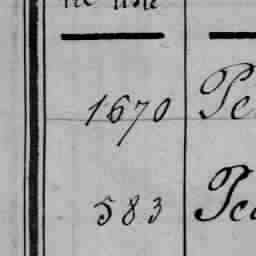 1670 Pe
583 Pe